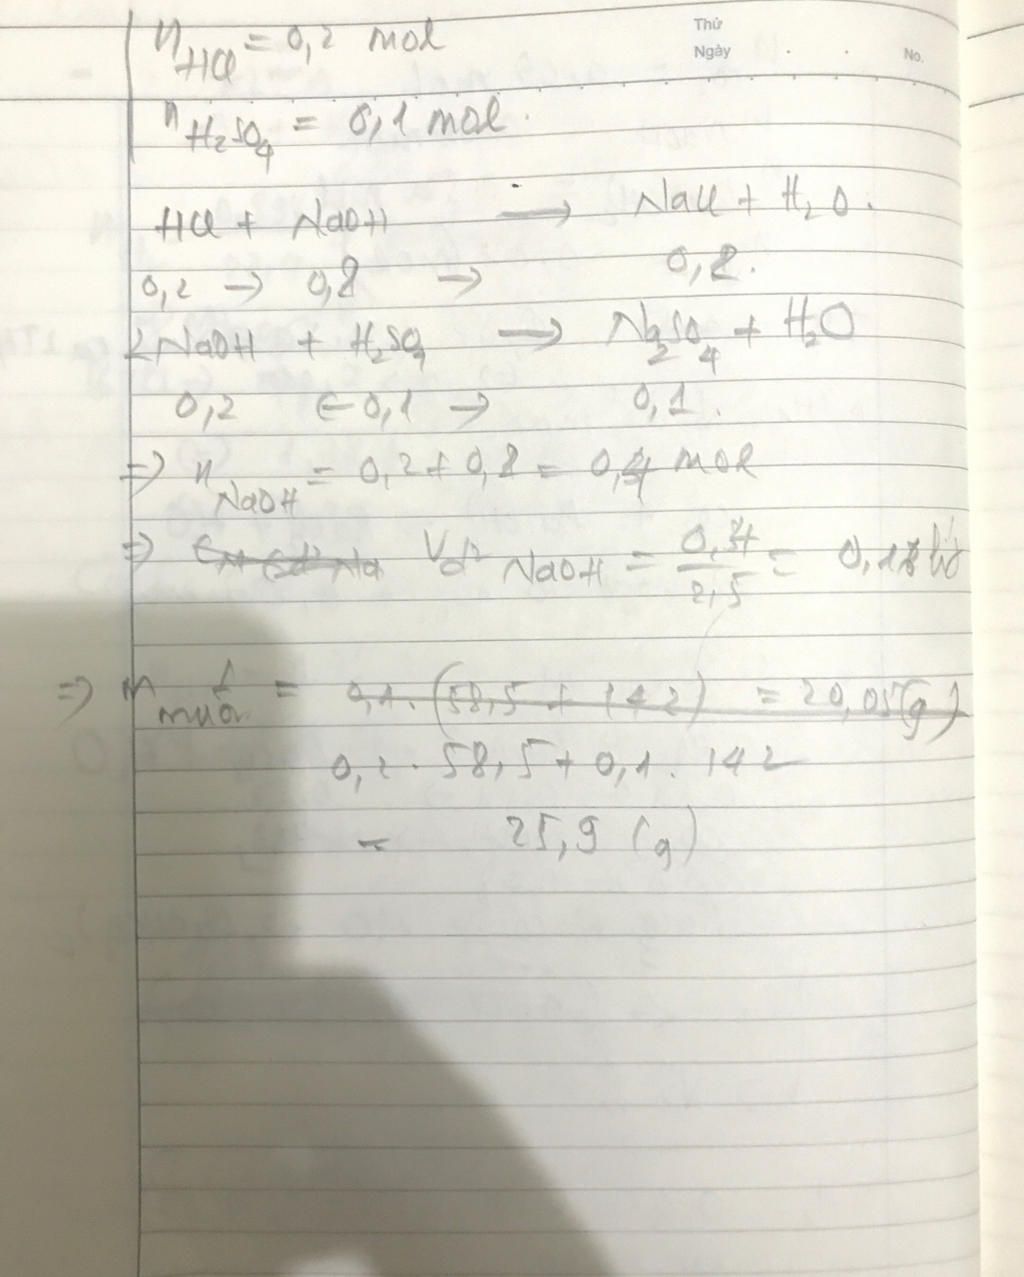 Thứ
Ngày . . No.
n HCl = 0,2 mol
n H₂SO₄ = 0,1 mol.
HCl + NaOH → NaCl + H₂O.
0,2 → 0,2 → 0,2.
2NaOH + H₂SO₄ → Na₂SO₄ + H₂O
0,2 ← 0,1 → 0,1.
=> n NaOH = 0,2 + 0,2 = 0,4 mol
=> Vd² NaOH = 0,4/2,5 =
=> m muối = 0,1. (58,5 + 142) = 20,05(g)
0,2. 58,5 + 0,1. 142
= 25,9 (g)